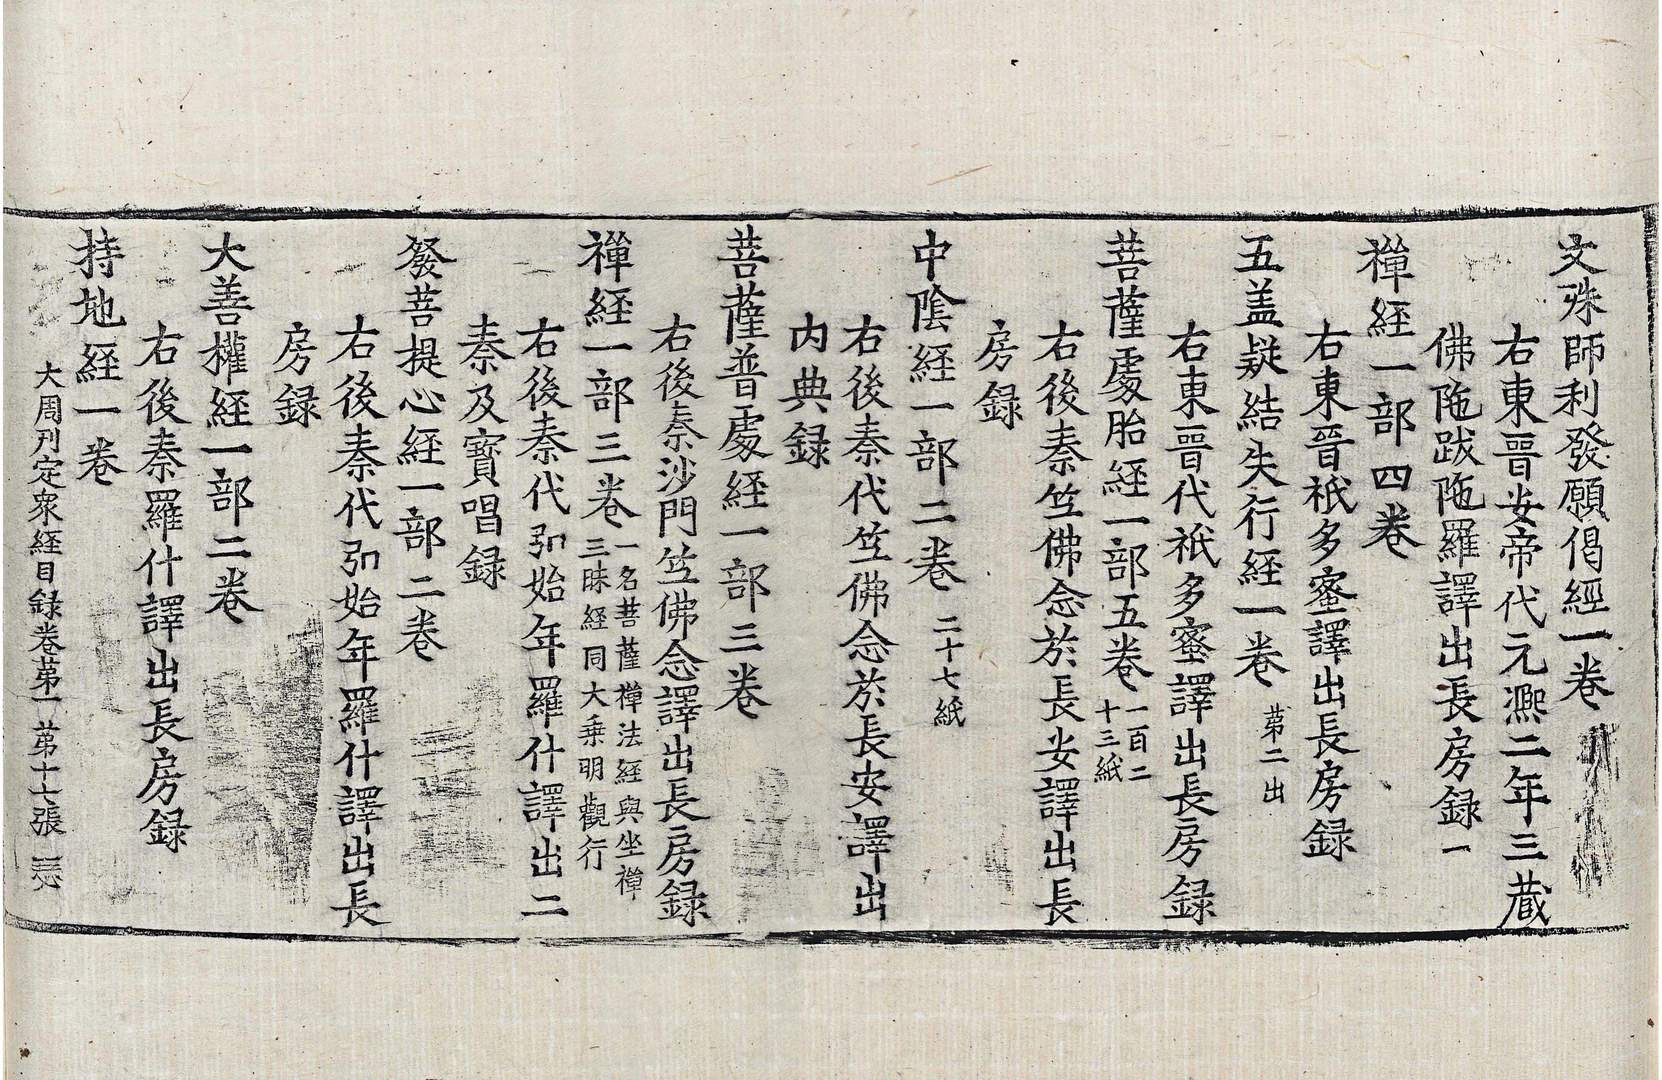 文殊師利發願偈經一卷
右東晉安帝代元凞二年三藏
佛陁跋陁羅譯出長房録一
禪經一部四卷
右東晉祇多蜜譯出長房録
五盖疑結失行經一卷 苐二出
右東晉代祇多蜜譯出長房録
菩薩處胎經一部五卷 一百二十三紙
右後秦竺佛念於長安譯出長
房録
中陰経一部二卷 二十七紙
右後秦代竺佛念於長安譯出
内典録
菩薩普處経一部三卷
右後秦沙門竺佛念譯出長房録
禪経一部三卷 一名菩薩禪法経與坐禪三昧経同大乗明觀行
右後秦代弘始年羅什譯出二
秦及寳唱録
發菩提心経一部二卷
右後秦代弘始年羅什譯出長
房録
大善權経一部二卷
右後秦羅什譯出長房録
持地経一卷
大周刋定衆経目録卷苐一 苐十七張